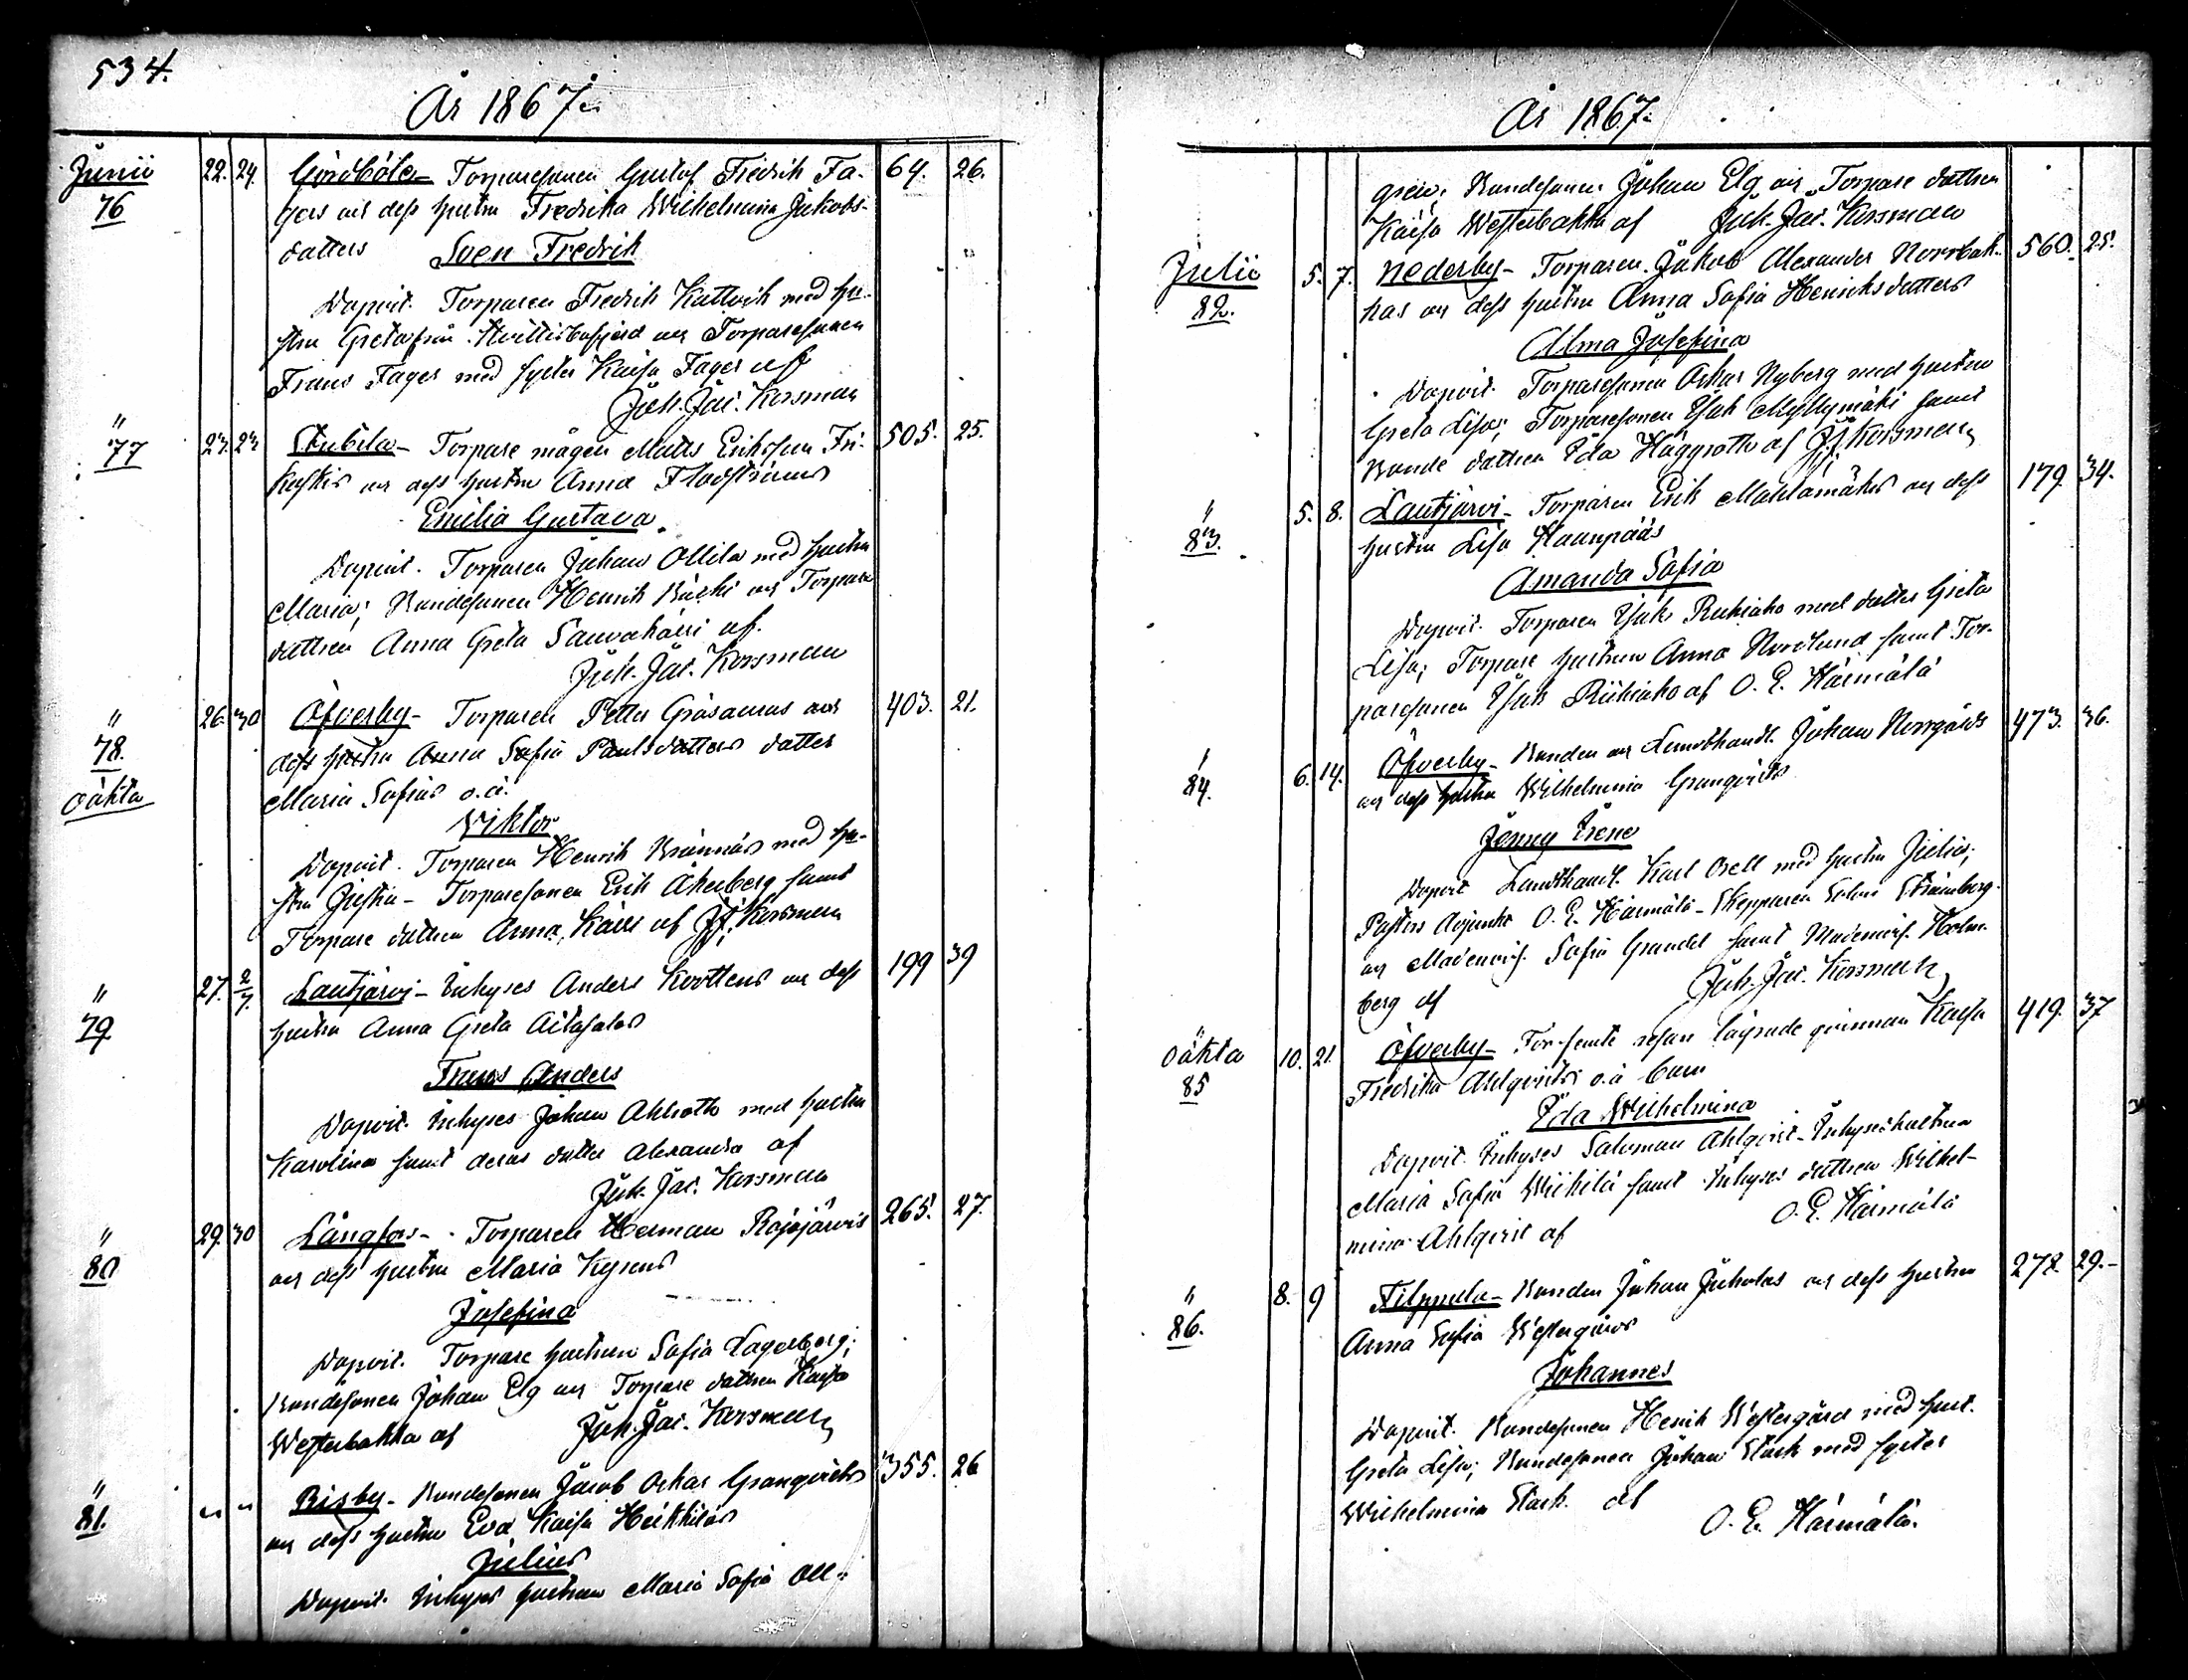 534.
År 1867.
Junii 22. 24. Torparesonen Gustaf Fredrik Fa- 64. 26.
76 gers och dess hustru Fredrika Wilhelmina Jakobs-
datters Sven Fredrik
Dopvit. Torparen Fredrik Kattvik med hu-
stru Greta från och Torparesonen
Frans Fager med syster Kaisa Fager af
Joh. Jac. Korsman
" 23. 23 Stubila- Torpare mågen Matts Eriksson Fri- 505. 25.
77 och dess hustru Anna Flodströms
Emilia Gustava.
Dopvit. Torparen Johan Ollila med hustru
Maria; Bondesonen Henrik och Torpare
dattren Anna Greta af.
Joh. Jac. Korsman
" 26. 30 Öfverby- Torparen Petter och 403. 21.
78. dess hustru Anna Sofia Paulsdatters datter
oäkta Maria Sofias o.ä.
Viktor
Dopvit. Torparen Henrik Brännäs med hu-
stru Justina- Torparesonen Erik Åkerberg samt
Torpare dattren Anna af J.J. Korsman
" 27. 2/7. Lautjärvi- Inhyses Anders och dess 199 39
79 hustru Anna Greta Aitasalos
Frans Anders
Dopvit. Inhyses Johan Ahlroth med hustru
Karolina samt deras datter Alexandra af
Joh. Jac. Korsman
" 29. 30 Långfors- Torparen Herman Rajajärvis 265. 27.
80 och dess hustru Maria
Josefina
Dopvit. Torpare hustrun Sofia Lagerberg;
Bondesonen Johan Elg och Torpare dattren Kaisa
Westerbakka af Joh. Jac. Korsman
" " " Risby- Bondesonen Jacob Oskar Granqvists 355. 26
81. och dess hustru Eva Kaisa Heikkiläs
Julius
Dopvit. Inhyses hustrun Maria Sofia All-
År 1867.
gren; Bondesonen Johan Elg och Torpare dattren
Kaisa Westerbakka af Joh. Jac. Korsman
Julii 5. 7. Nederby- Torparen Jakob Alexander Norrbak- 560. 25.
82. kas och dess hustru Anna Sofia Henriksdatters
Alma Josefina
Dopvit. Torparesonen Oskar Nyberg med hustru
Greta Lisa; Torparesonen Isak Myllymäki samt
Bonde dattren Ida Häggroth af J.J. Korsman
" 5. 8. Lautjärvi- Torparen Erik Mahlamäkis och dess 179. 34.
83. hustru Lisa Haanpääs
Amanda Sofia
Dopvit. Torparen Isak Riihiaho med datter Greta
Lisa; Torpare hustrun Anna Nordlund samt Tor-
paresonen Isak Riihiaho af O. E. Härmälä
" 6. 14. Öfverby- Bonden och Landthandl. Johan Norrgårds 473. 36.
84. och dess hustru Wilhelmina Granqvists
Jenny Irene
Dopvit Landthandl. Karl Orell med hustru Julia;
Pastors Adjunkt O. E. Härmälä- Skepparen Strömberg-
och Mademois. Sofia Grandel samt Mademois. Holm-
berg af Joh. Jac. Korsman
" 10. 21. Öfverby- För femte resan lägrade qvinnan Kaisa 419. 37
oäkta Fredrika Ahlqvists o.ä barn
85 Ida Wilhelmina
Dopvit. Inhyses Salomon Ahlqvist- Inhyseshustrun
Maria Sofia samt Inhyses dattren Wilhel-
mina Ahlqvist af O. E. Härmälä
" 8. 9 Filppula- Bonden Johan Juholas och dess hustru 278. 29.-
86. Anna Sofia Westergårds
Johannes
Dopvit. Bondesonen Henrik Westergård med hust.
Greta Lisa; Bondesonen Johan Stark med syster
Wilhelmina Stark. af
O. E. Härmälä.